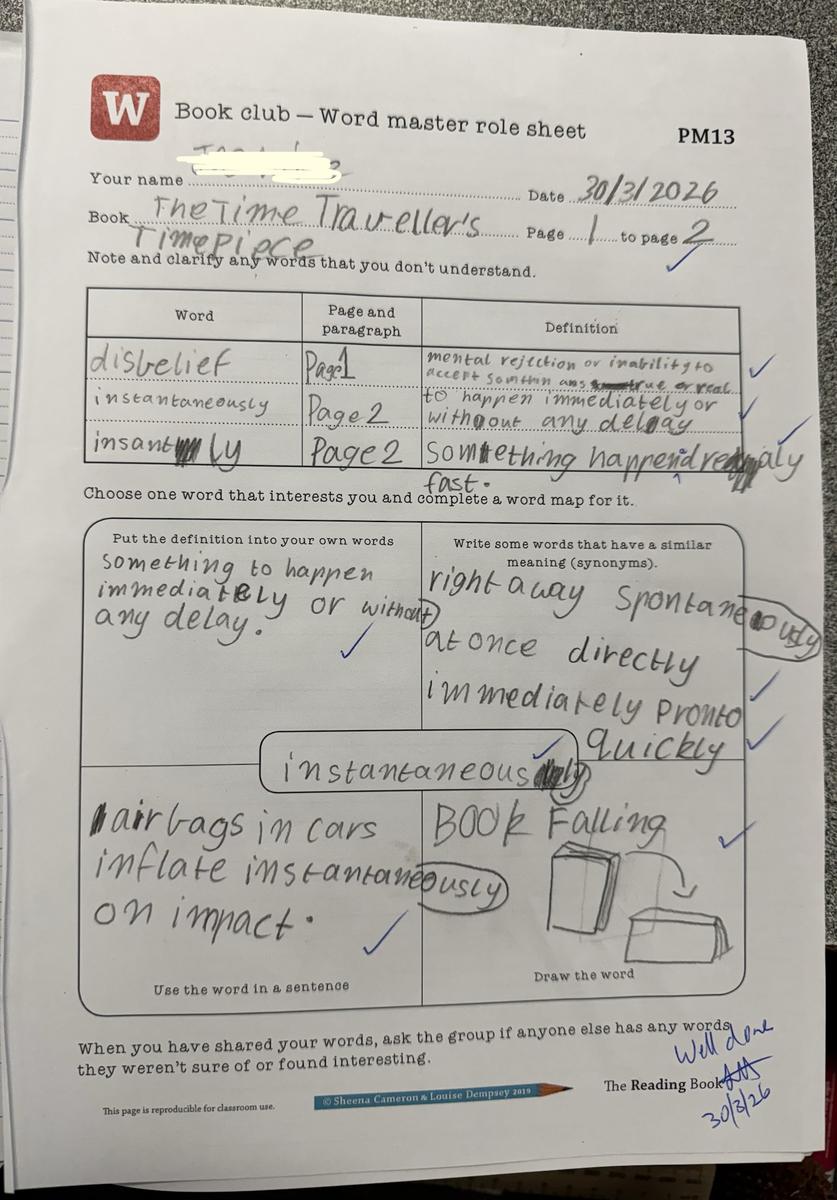 W
Book club — Word master role sheet
PM13
Your name
Date 30/3/2026
Book The Time Traveller's
Timepiece
Page 1 to page 2
Note and clarify any words that you don't understand.
Word
Page and
paragraph
Definition
disbelief
Page1
mental rejection or inability to
accept somthin ans true or real
instantaneously
Page 2
to happen immediately or
without any delay
insantly
Page 2
something happend realy
fast.
Choose one word that interests you and complete a word map for it.
Put the definition into your own words
something to happen
immediately or without
any delay.
Write some words that have a similar
meaning (synonyms).
right away spontaneously
at once directly
immediately pronto
quickly
instantaneously
airbags in cars
inflate instantaneously
on impact.
Use the word in a sentence
Book Falling
Draw the word
When you have shared your words, ask the group if anyone else has any words
they weren't sure of or found interesting.
Well done
30/3/26
This page is reproducible for classroom use.
© Sheena Cameron & Louise Dempsey 2019
The Reading Book